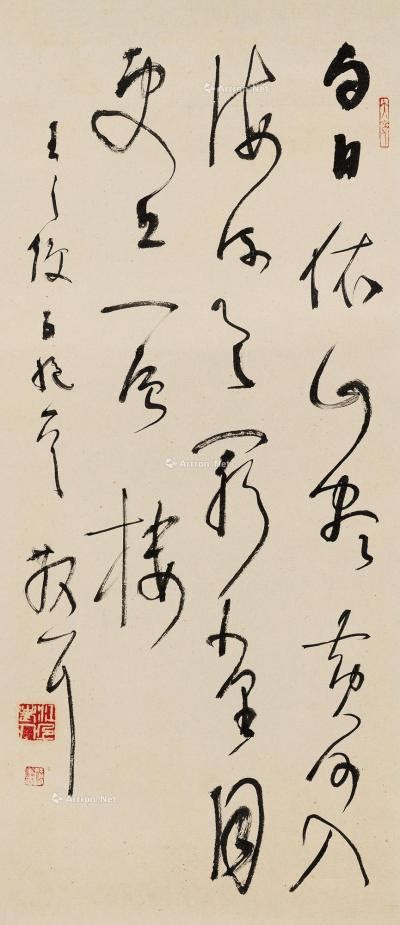 白日依山盡黃河入
海流欲窮千里目
更上一層樓
王之渙
散耳
Artron.Net
Artron.Net
Artron.Net